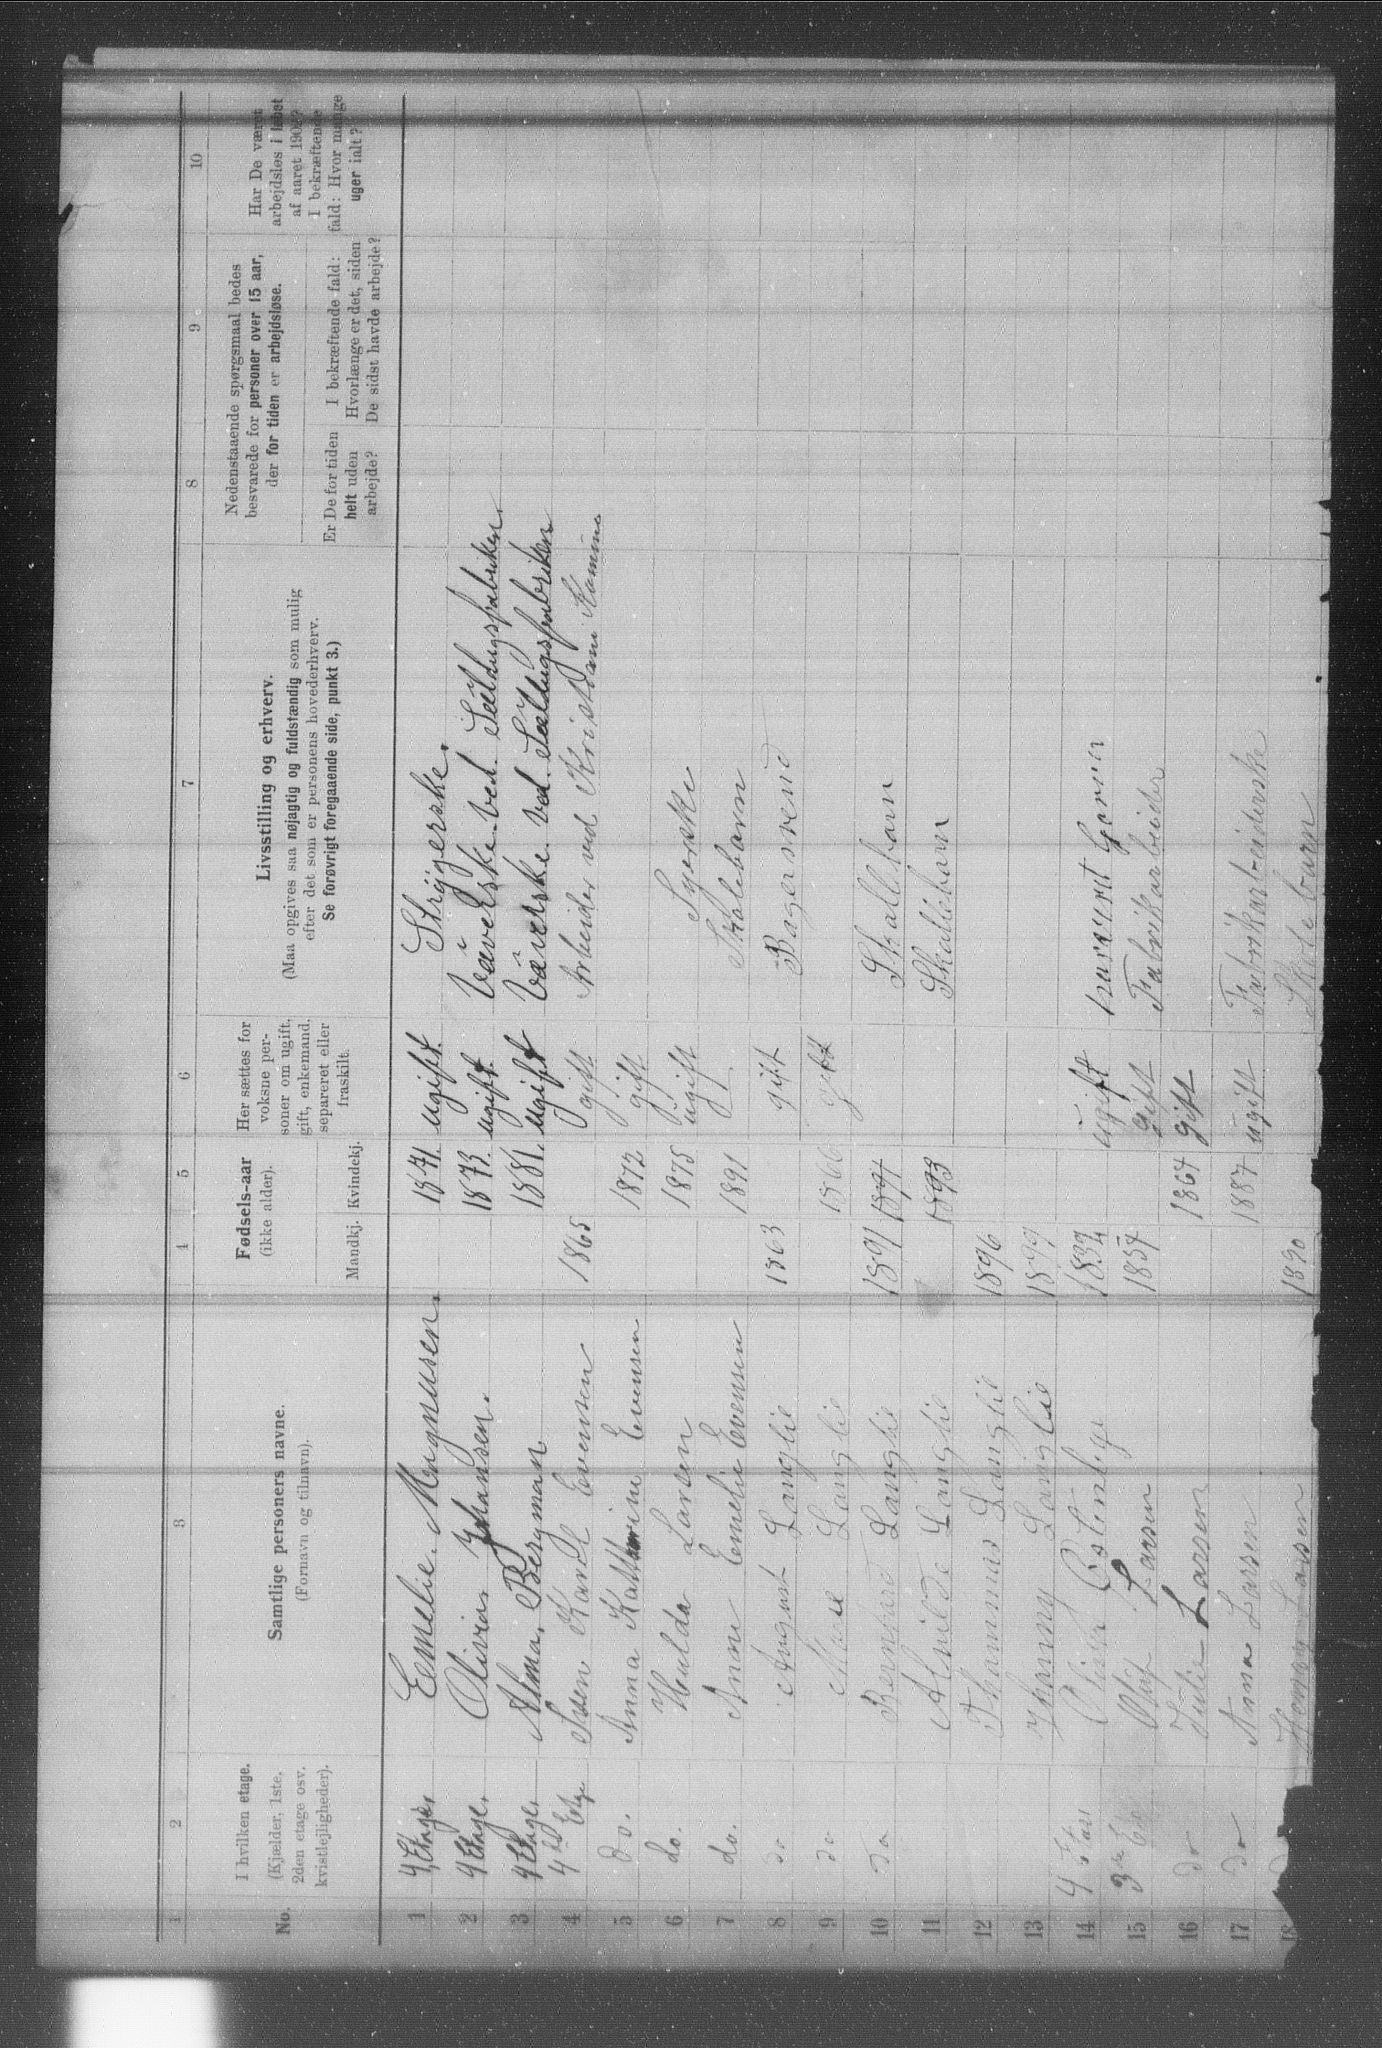 1 2 3 4 5 6 7 8 9 10
No.
I hvilken etage.
(Kjælder, 1ste,
2den etage osv.
kvistlejligheder).
Samtlige personers navne.
(Fornavn og tilnavn).
Fødsels-aar
(ikke alder).
Mandkj. Kvindekj.
Her sættes for
voksne per-
soner om ugift,
gift, enkemand,
separeret eller
fraskilt.
Livsstilling og erhverv.
(Maa opgives saa nøjagtig og fuldstændig som mulig
efter det som er personens hovederhverv.
Se forøvrigt foregaaende side, punkt 3.)
Nedenstaaende spørgsmaal bedes
besvarede for personer over 15 aar,
der for tiden er arbejdsløse.
Er De for tiden
helt uden
arbejde?
I bekræftende fald:
Hvorlænge er det, siden
De sidst havde arbejde?
Har De været
arbejdsløs i løbet
af aaret 190
I bekræftende
fald: Hvor mange
uger ialt?
1 4 Etage. Emelie. Magnusen. 1871. ugift. Strygerske.
2 4 Etage. Olivia Johansen. 1873. ugift. Væverske. ved. Seildugsfabriken.
3 4 Etage. Alma. Bergman 1881. ugift Væverske ved. Seildugsfabriken
4 4de Etge Karl Evensen 1865 gift Arbeider ved Kristiani Komune
5 do. Anna Kathrine Evensen 1872 gift
6 do. Hulda Larsen 1875 ugift Syerske
7 do. Anne Emelie Evensen 1891 Skolebarn
8 do August Langlie 1863 gift Bagersvend
9 do Marie Langlie 1866 gift
10 do Bernhard Langlie 1891 Skollebarn
11 Alvilde Langlie 1893 Skollebarn
12 Thammis Langlie 1896
13 Langlie 1899
14 4 1834 ugift Garver
15 3de Larsen 1857 gift Fabrikarbeider
16 do Julie Larsen 1864 gift
17 do Anna Larsen 1887 ugift Fabrikarbeiderske
18 Larsen 1890 Skolebarn